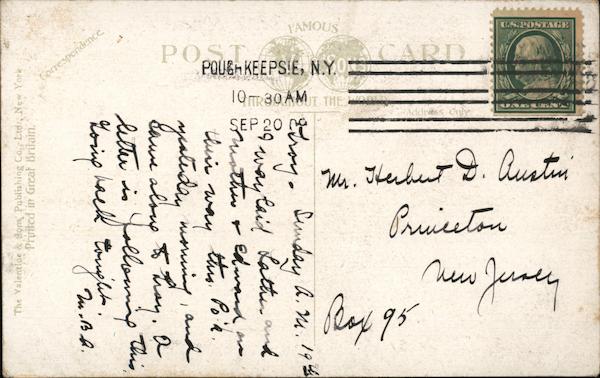 FAMOUS
POST CARD
THROUGHOUT THE WORLD
Correspondence.
Address Only
The Valentine & Sons Publishing Co., Ltd., New York
Printed in Great Britain.
POUGHKEEPSIE, N.Y.
10-30AM
SEP 20 09
U.S. POSTAGE
ONE CENT
Troy - Sunday A.M. 19th
I waylaid Father and
mother & Edward on
their way thro. Po'k.
yesterday morning, and
came along to Troy. A
letter is following this.
Going back tonight.
M.B.A.
Mr. Herbert D. Austin
Princeton
New Jersey
Box 95